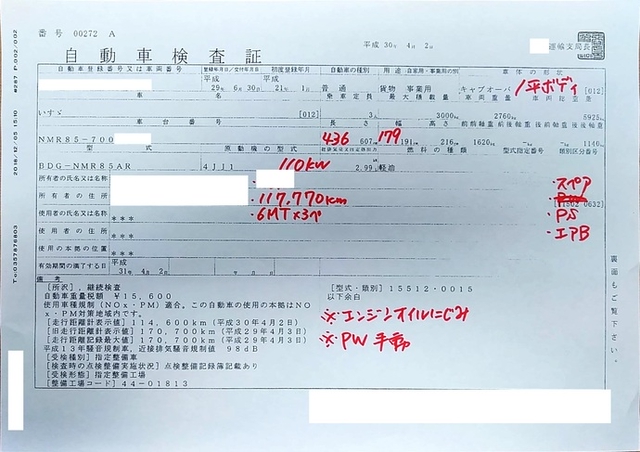 番号 00272 A
平成 30年 4月 2日
運輸支局長
自動車検査証
自動車登録番号又は車両番号 登録年月日/交付年月日 初度登録年月 自動車の種別 用途 自家用・事業用の別 車体の形状
平成 29年 6月30日 平成 21年 1月 普通 貨物 事業用 キャブオーバ [012] 平ボディ
乗車定員 最大積載量 車両重量 車両総重量
いすゞ [012] 3人 3000kg 2760kg 5925kg
車台番号 長さ 幅 高さ 前前軸重 前後軸重 後前軸重 後後軸重
NMR85-700 436 607cm 179 191cm 216cm 1620kg -kg -kg 1140kg
型式 原動機の型式 燃料の種類 型式指定番号 類別区分番号
BDG-NMR85AR 4JJ1 110kw 2.99 軽油
所有者の氏名又は名称 ・スペア
所有者の住所 ・117,770km [1502 0632]
使用者の氏名又は名称 *** ・6MT×3ペ ・PS
使用者の住所 *** ・エアB
使用の本拠の位置 ***
有効期間の満了する日 平成 31年 4月 2日
備考
[所沢],継続検査 [型式・類別]15512-0015
自動車重量税額 ¥15,600 以下余白
使用車種規制(NOx・PM)適合。この自動車の使用の本拠はNO
x・PM対策地域内です。
[走行距離計表示値] 114,600km(平成30年4月2日)
※エンジンオイルにじみ
[旧走行距離計表示値] 170,700km(平成29年4月3日)
[走行距離記録最大値] 170,700km(平成29年4月3日)
※PW 手動
平成13年騒音規制車、近接排気騒音規制値 98dB
[受検種別]指定整備車
[検査時の点検整備実施状況]点検整備記録簿記載あり
[受検形態]指定整備工場
[整備工場コード]44-01813
裏面もご覧下さい。
2018/12/05 15:10
P.002/002